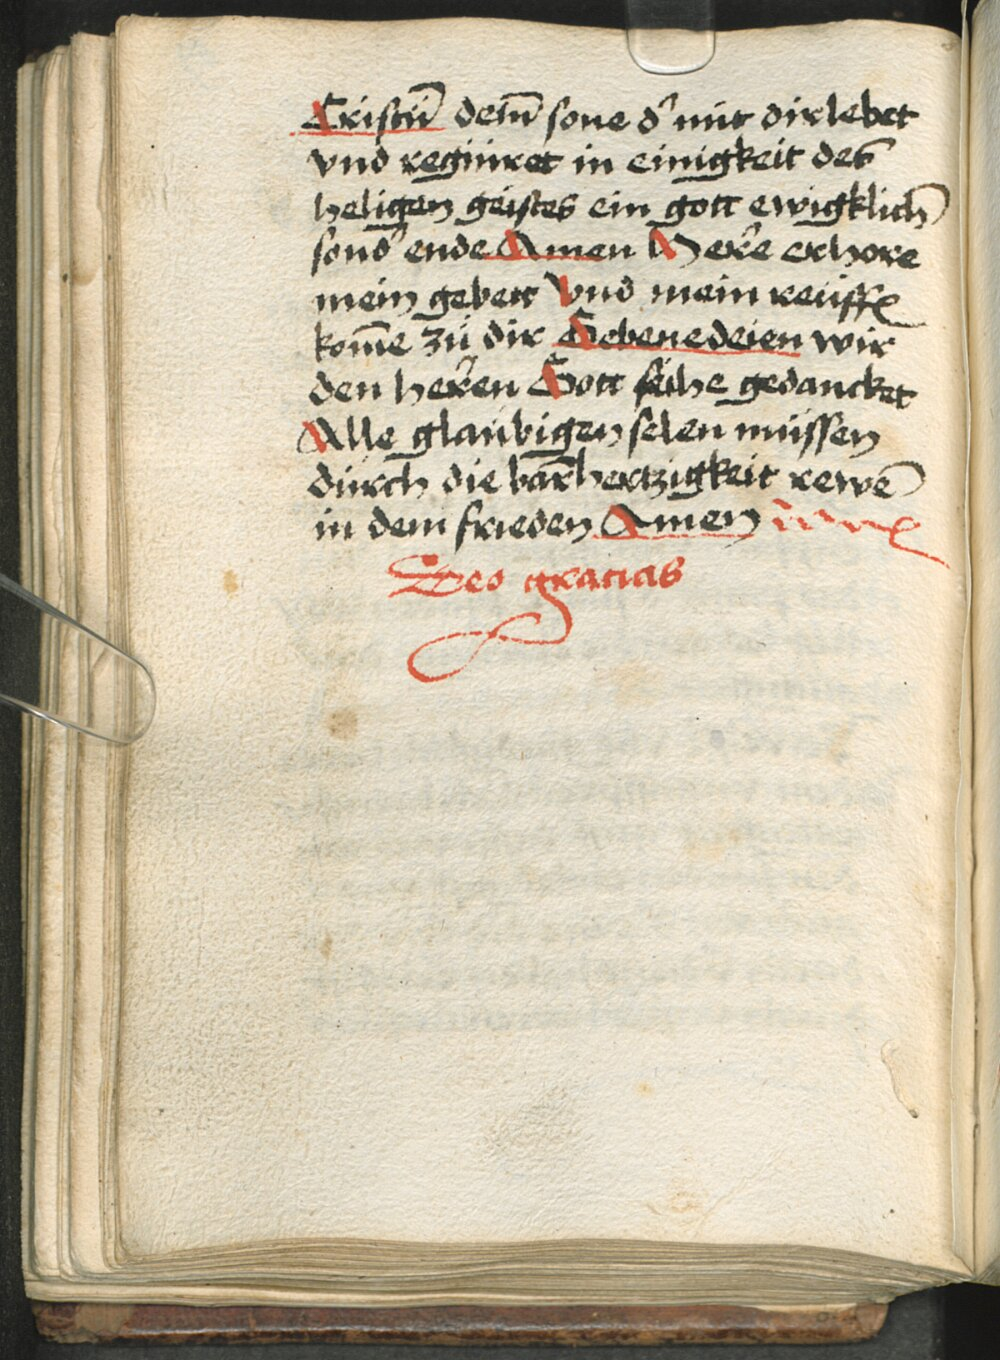 Cristū deinē sone d' mit dir lebet
vnd regniret in einigkeit des
heligen geistes ein gott ewigklichē
sond' ende Amen Here erhore
mein gebett Vnd mein reüffē
kom̄e zü dir Gebenedeien wir
den heren Gott seihe gedancket
Alle glaübigen selen müssen
dürch die barhertzigkeit rewē
in dem frieden Amen
Deo gracias